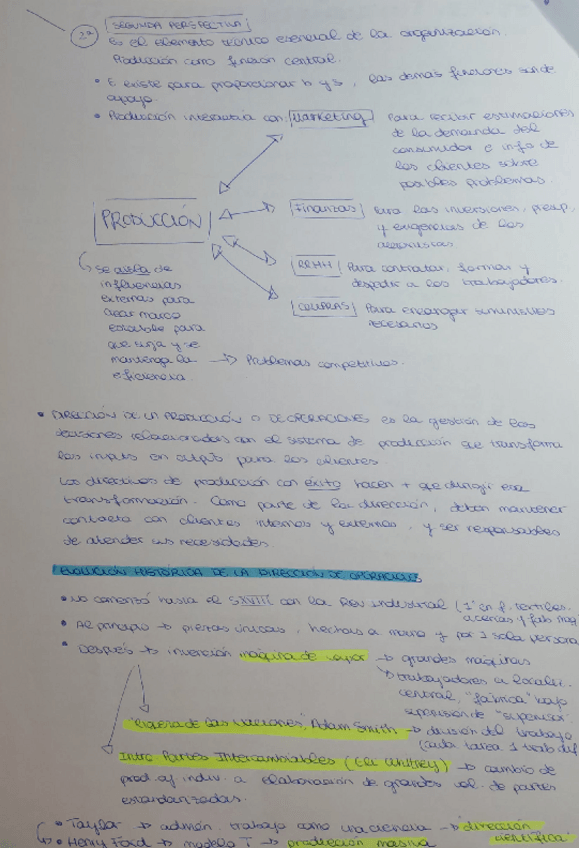 2ª SEGUNDA PERSPECTIVA
Es el elemento técnico esencial de la organización.
Producción como función central.
• E existe para proporcionar b y s, las demás funciones son de
apoyo.
• Producción interactúa con: Marketing Para recibir estimaciones
de la demanda del
consumidor e info de
los clientes sobre
posibles problemas
PRODUCCIÓN
Finanzas Para las inversiones, presup,
y exigencias de los
accionistas
RRHH Para contratar, formar y
despedir a los trabajadores.
COMPRAS Para encargar suministros
necesarios
Se aísla de
influencias
externas para
crear marco
estable para
que surja y se
mantenga la
eficiencia
→ Problemas competitivos.
• DIRECCIÓN DE LA PRODUCCIÓN O DE OPERACIONES es la gestión de las
decisiones relacionadas con el sistema de producción que transforma
los inputs en outputs para los clientes
Los directivos de producción con éxito hacen + que dirigir esa
transformación. Como parte de la dirección, deben mantener
contacto con clientes internos y externos, y ser responsables
de atender sus necesidades.
EVOLUCIÓN HISTÓRICA DE LA DIRECCIÓN DE OPERACIONES
• No comenzó hasta el SXVIII con la Rev industrial (1º en f. textiles.
acerías y fab maq
• Al principio → piezas únicas, hechas a mano y por 1 sola persona
• Después → invención máquina de vapor → grandes máquinas
trabajadores a locali.
central, "fábrica" bajo
supervisión de "supervisor.
"Riqueza de las Naciones", Adam Smith → división del trabajo
(cada tarea 1 trab dif
Intro Partes Intercambiables (Eli Whitney) → cambio de
prod. indiv. a elaboración de grandes vol. de partes
estandarizadas.
• Taylor → admón. trabajo como una ciencia → dirección
científica
• Henry Ford → modelo T → producción masiva